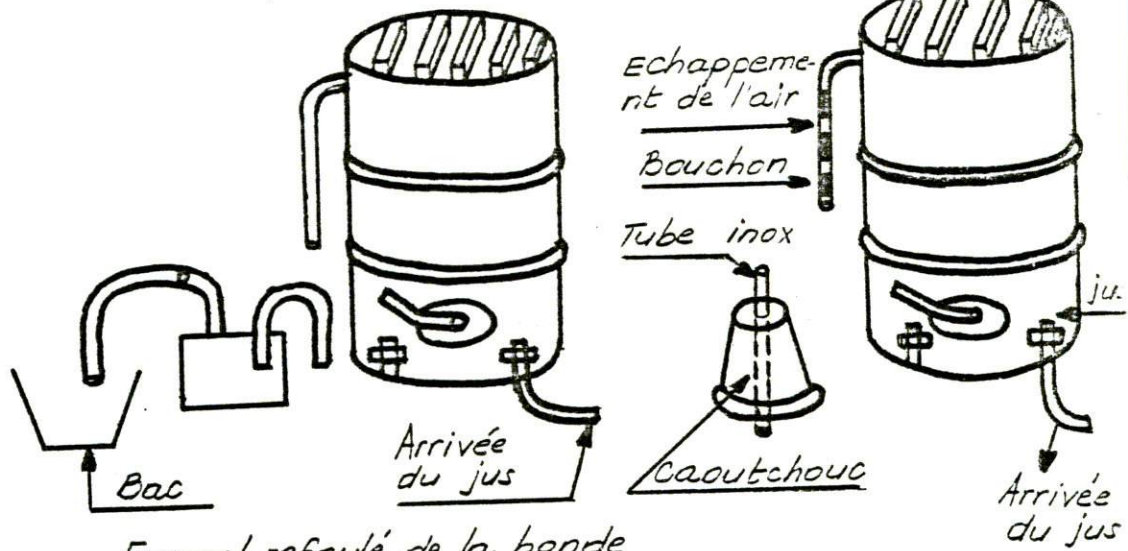 Echappeme-
nt de l'air
Bouchon
Tube inox
ju
Bac
Arrivée
du jus
Caoutchouc
Arrivée
du jus
refoulé de la bonde